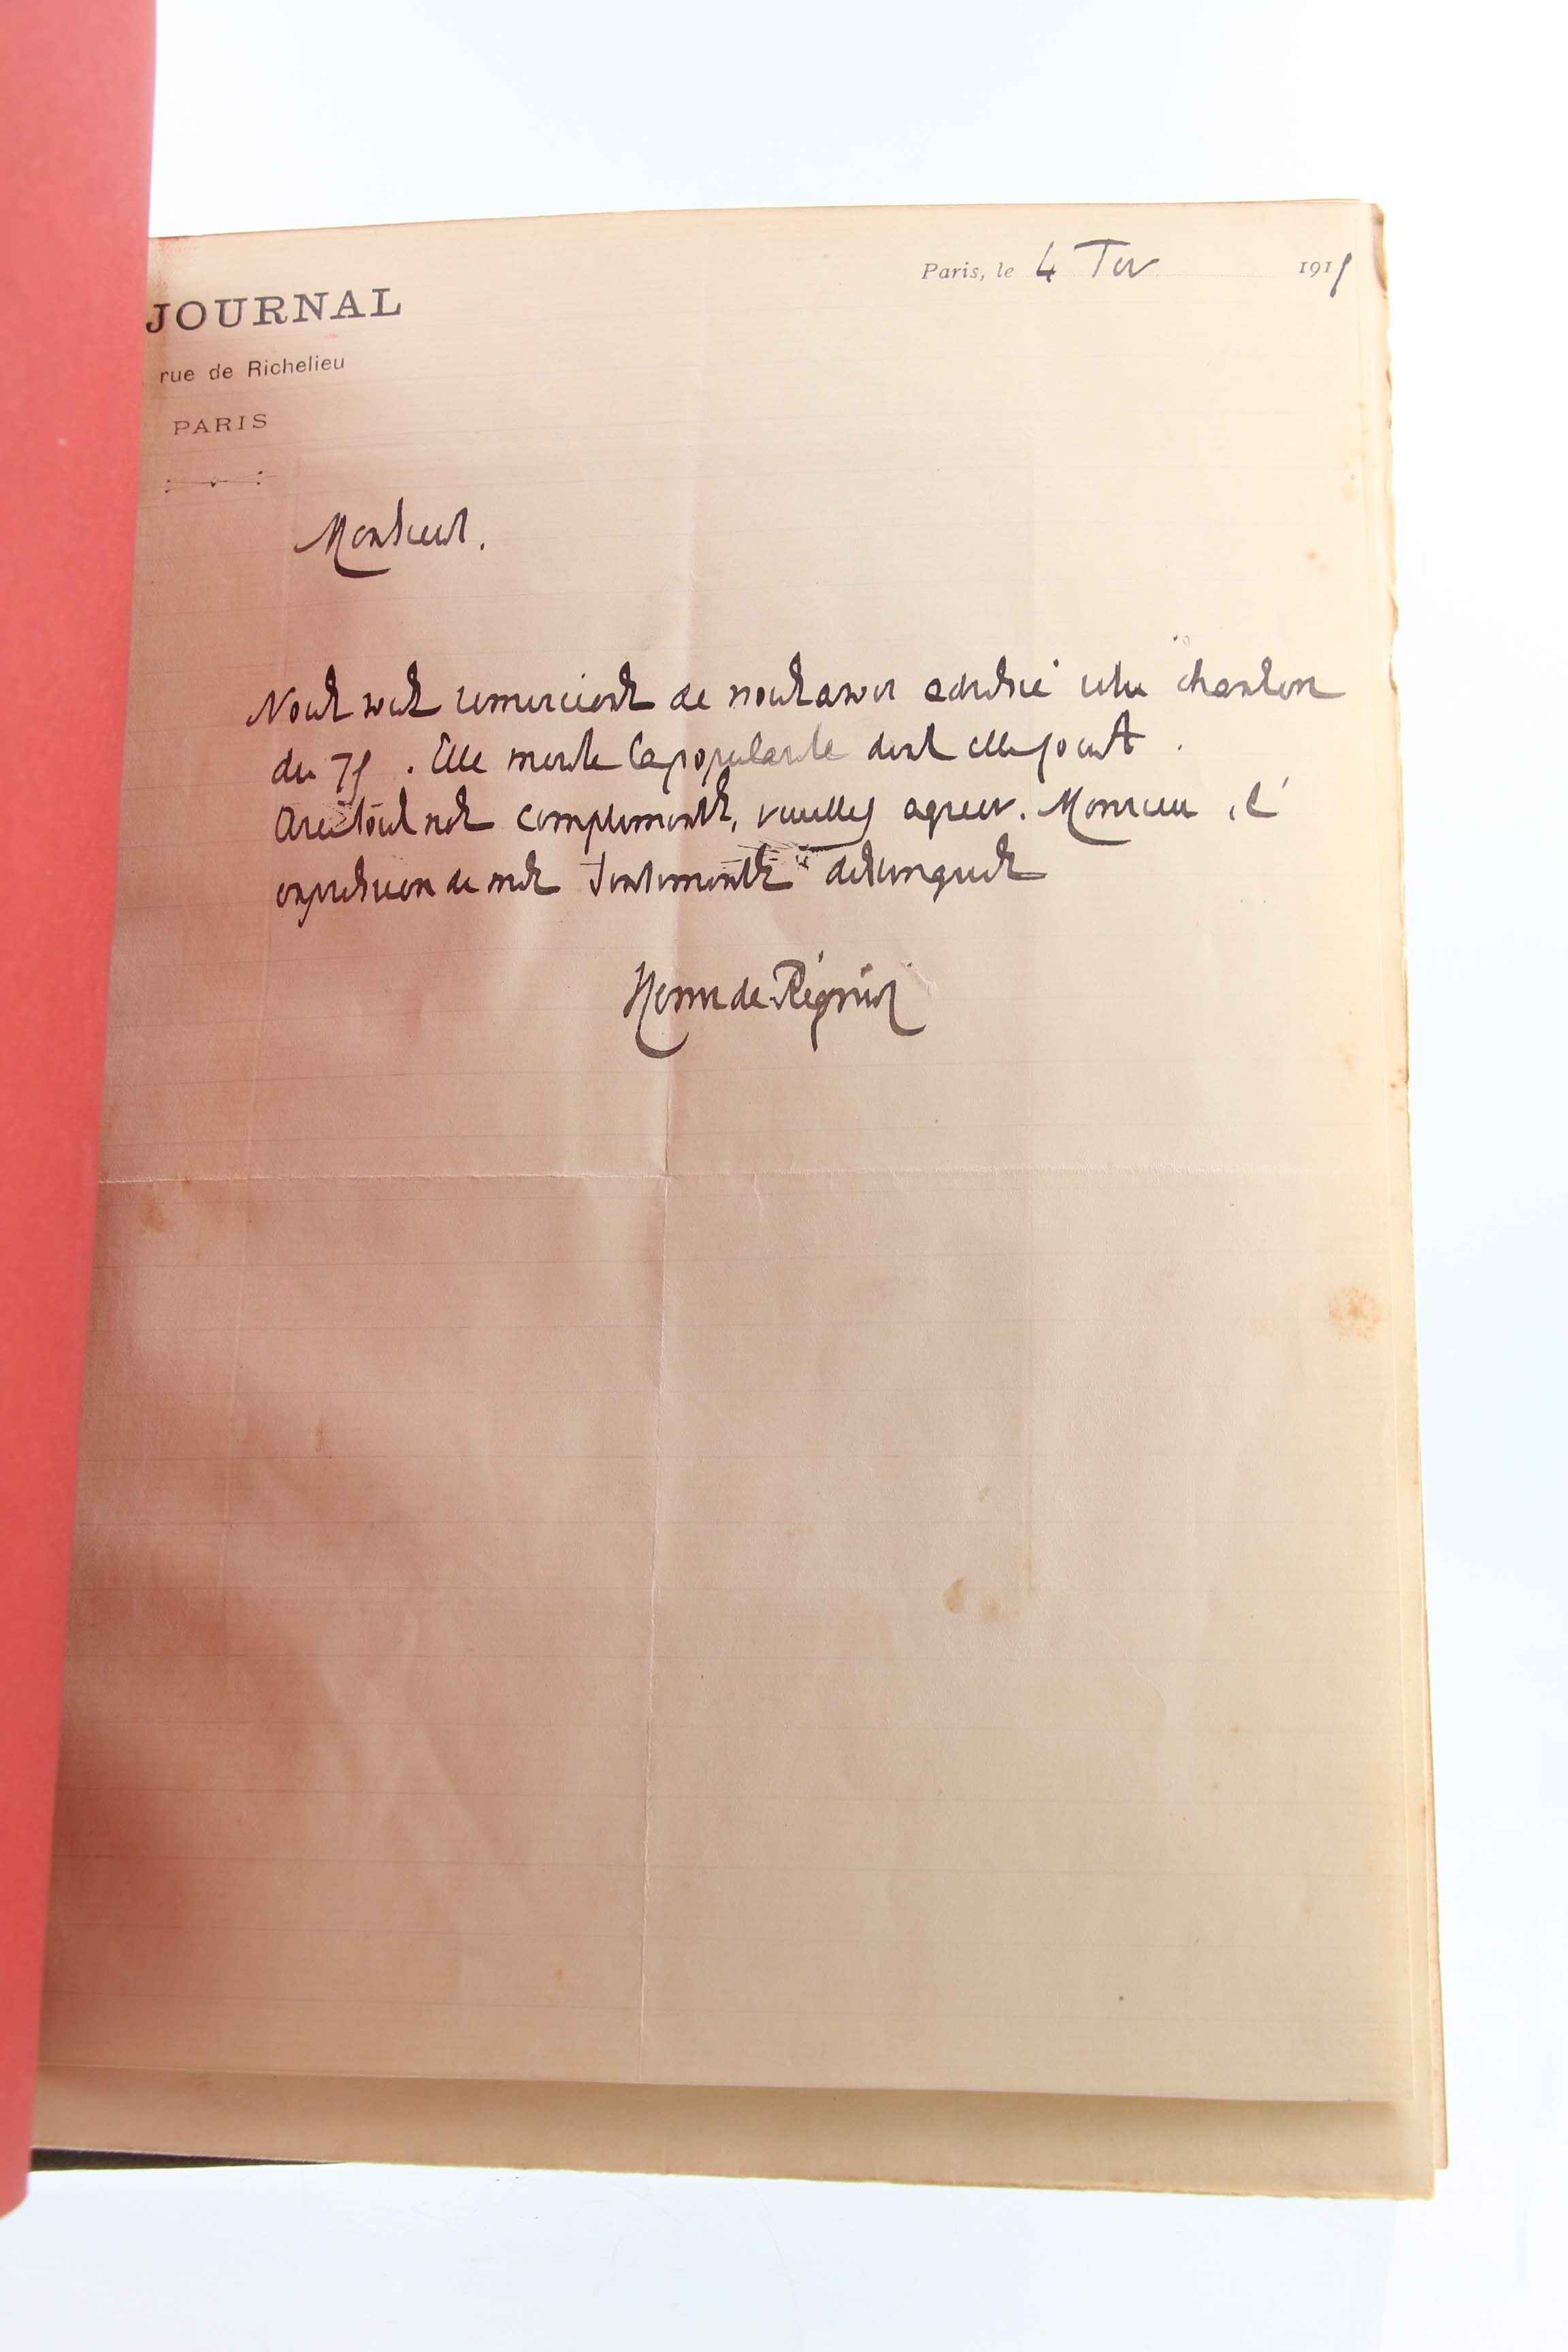 JOURNAL
rue de Richelieu
PARIS
Paris, le 4 Fev 1915
Monsieur.
Nous vous remercions de nous avoir adressé votre chanson
du 75. Elle merite la popularite dont elle jouit.
Avec tous nos compliments, veuillez agreer. Monsieur, l'
expression de mes sentiments distingués
Henri de Régnier